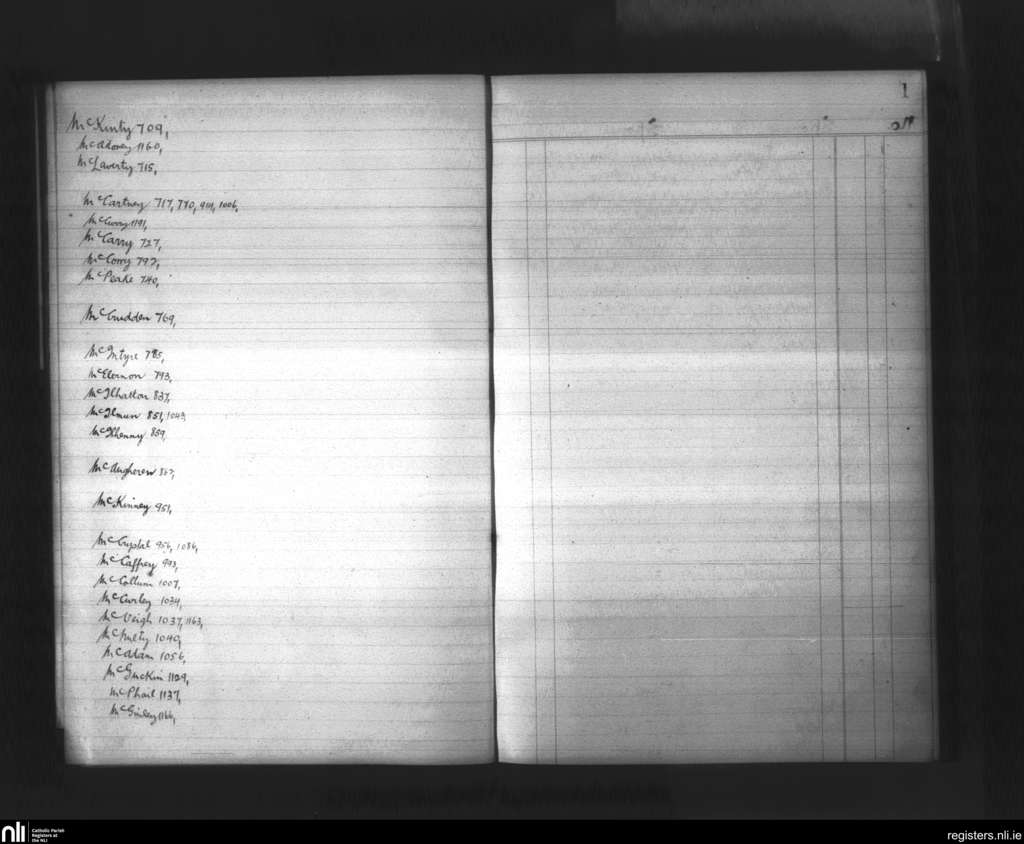 McKinty 709,
McAtorey 1160,
McLaverty 715,
McCartney 717, 770, 901, 1006,
McCurry 1191,
McCarry 727,
McCorry 797,
McPeake 740,
McCrudden 769,
McIntyre 785,
McElernon 793,
McIlhatton 837,
McIlmun 851, 1043,
McIlhenny 859,
McAugheren 867,
McKinney 951,
McCrystal 956, 1086,
McCaffrey 993,
McCollum 1007,
McCurley 1034,
McVeigh 1037, 1163,
McNulty 1040,
McAdam 1056,
McGuckin 1129,
McPhail 1137,
McGinley 1166,
1
No
nli Catholic Parish
Registers at
the NLI
registers.nli.ie